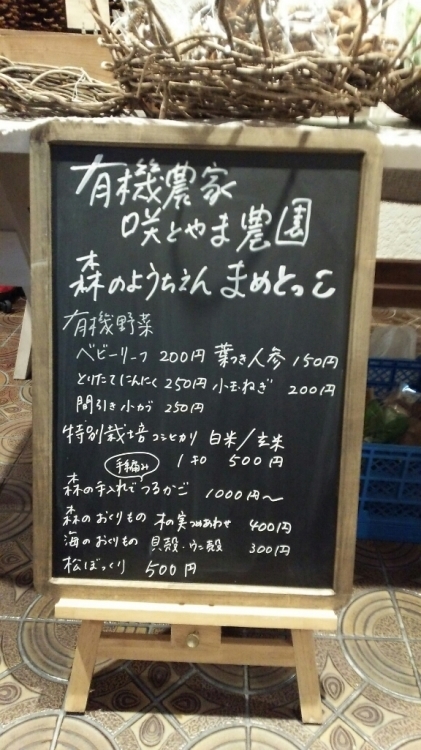 有機農家
咲とやま農園
森のようちえん まめとっこ
有機野菜
ベビーリーフ 200円 葉つき人参 150円
とりたてにんにく 250円 小玉ねぎ 200円
間引き小カブ 250円
特別栽培 コシヒカリ 白米/玄米
1キロ 500円
手編み
森の手入れで つるかご 1000円〜
森のおくりもの 木の実つめあわせ 400円
海のおくりもの 貝殻・ウニ殻 300円
松ぼっくり 500円